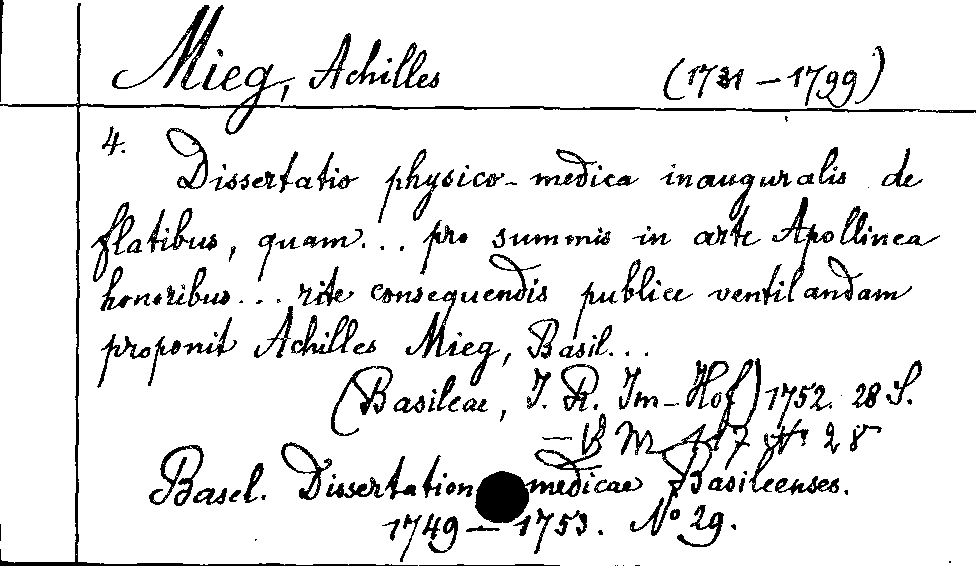 Mieg, Achilles (1731 – 1799)
4.
Dissertatio physico-medica inauguralis de
flatibus, quam... pro summis in arte Apollinea
honoribus... rite consequendis publice ventilandam
proponit Achilles Mieg, Basil...
(Basileae, J. R. Im-Hof) 1752. 28 S.
28
Basel. Dissertation medicae Basileenses.
1749 – 1753. No 29.